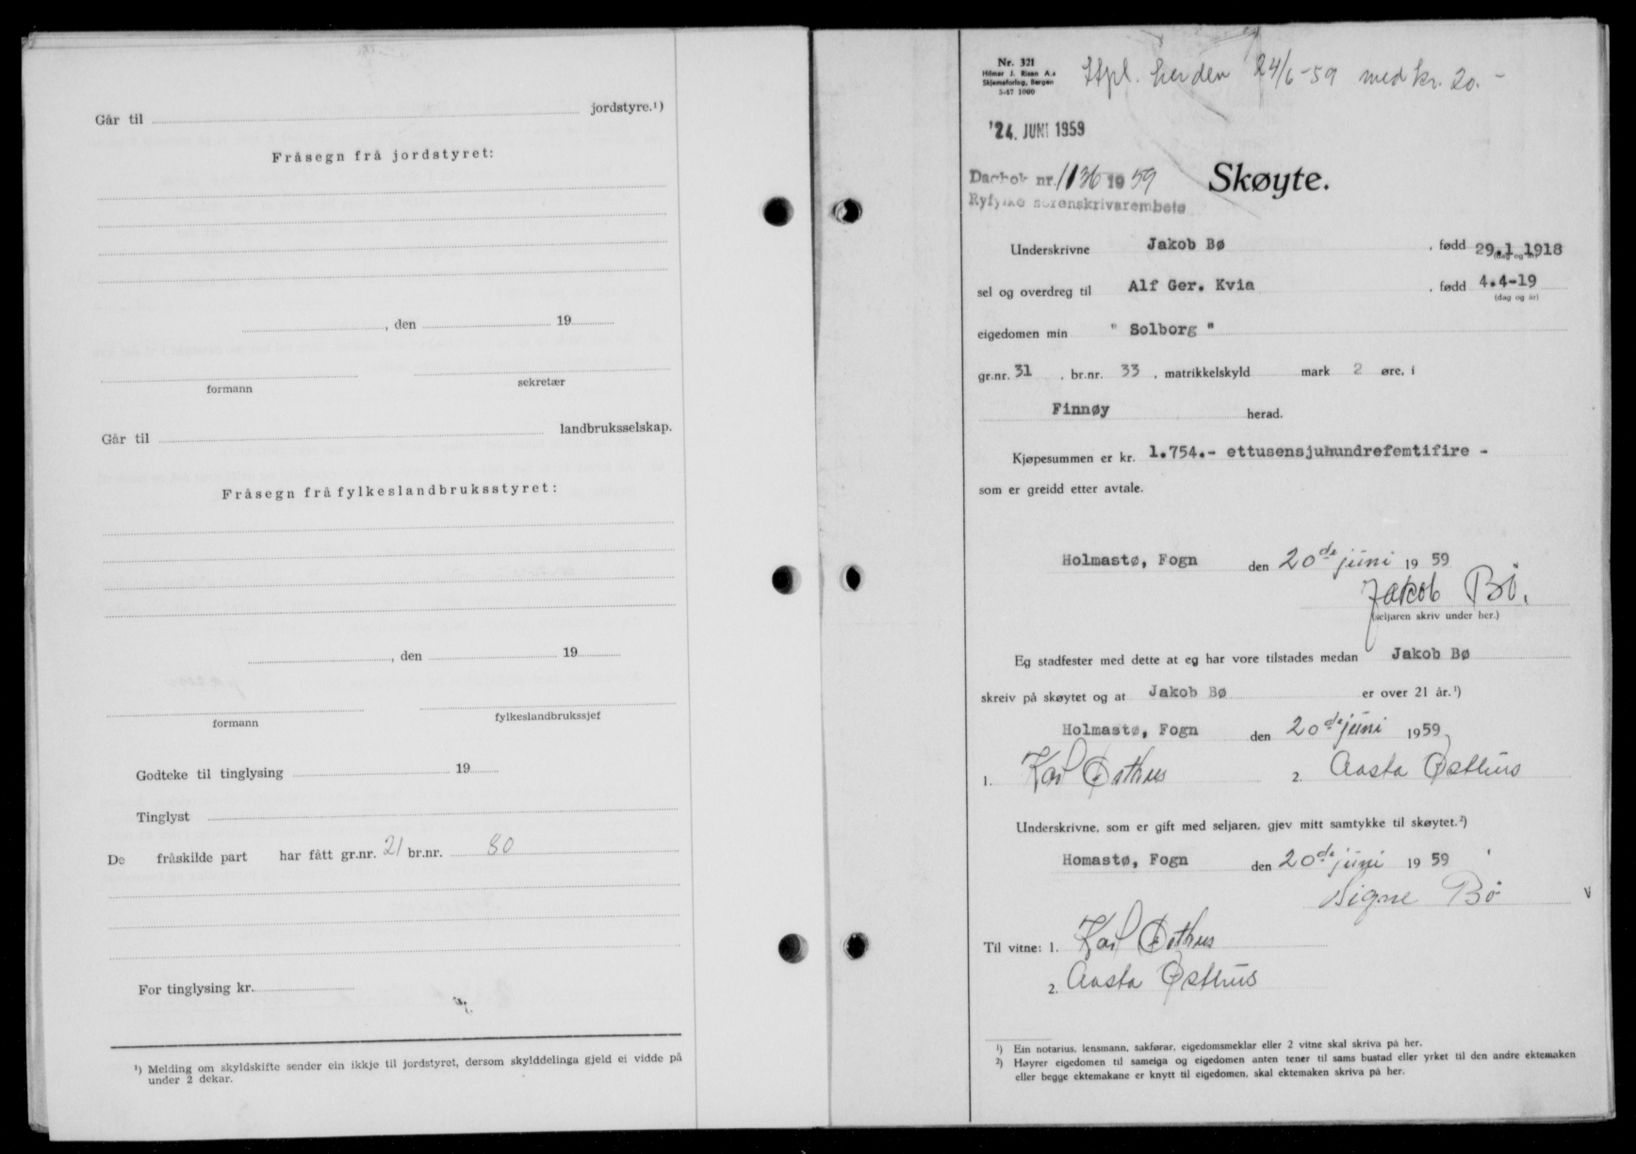 Går til jordstyre.¹)
Fråsegn frå jordstyret:
, den 19
formann sekretær
Går til landbruksselskap.
Fråsegn frå fylkeslandbruksstyret:
, den 19
formann fylkeslandbrukssjef
Godteke til tinglysing 19
Tinglyst
De fråskilde part har fått gr.nr. 21 br.nr. 80
For tinglysing kr.
¹) Melding om skyldskifte sender ein ikkje til jordstyret, dersom skylddelinga gjeld ei vidde på
under 2 dekar.
Nr. 321
Hilmar J. Riisen A.s
Skjemaforlag, Bergen
5-47 1000
Stpl. her den 24/6-59 med kr. 20.-
24. JUNI 1959
Dagbok nr. 1136 1959
Ryfylke sorenskrivarembete
Skøyte.
Underskrivne Jakob Bø , fødd 29.1 1918
(dag og år)
sel og overdreg til Alf Ger. Kvia , fødd 4.4-19
(dag og år)
eigedomen min " Solborg "
gr.nr. 31 , br.nr. 33 , matrikkelskyld mark 2 øre, i
Finnøy herad.
Kjøpesummen er kr. 1.754.- ettusensjuhundrefemtifire -
som er greidd etter avtale.
Holmastø, Fogn den 20de juni 19 59
Jakob Bø.
(seljaren skriv under her.)
Eg stadfester med dette at eg har vore tilstades medan Jakob Bø
skreiv på skøytet og at Jakob Bø er over 21 år.¹)
Holmastø, Fogn den 20de juni 1959
1. Karl Østhus 2. Aasta Østhus
Underskrivne, som er gift med seljaren, gjev mitt samtykke til skøytet.²)
Homastø, Fogn den 20de juni 19 59
Signe Bø
Til vitne: 1. Karl Østhus
2. Aasta Østhus
¹) Ein notarius, lensmann, sakførar, eigedomsmeklar eller 2 vitne skal skriva på her.
²) Høyrer eigedomen til sameiga og eigedomen anten tener til sams bustad eller yrket til den andre ektemaken
eller begge ektemakane er knytt til eigedomen, skal ektemaken skriva på her.